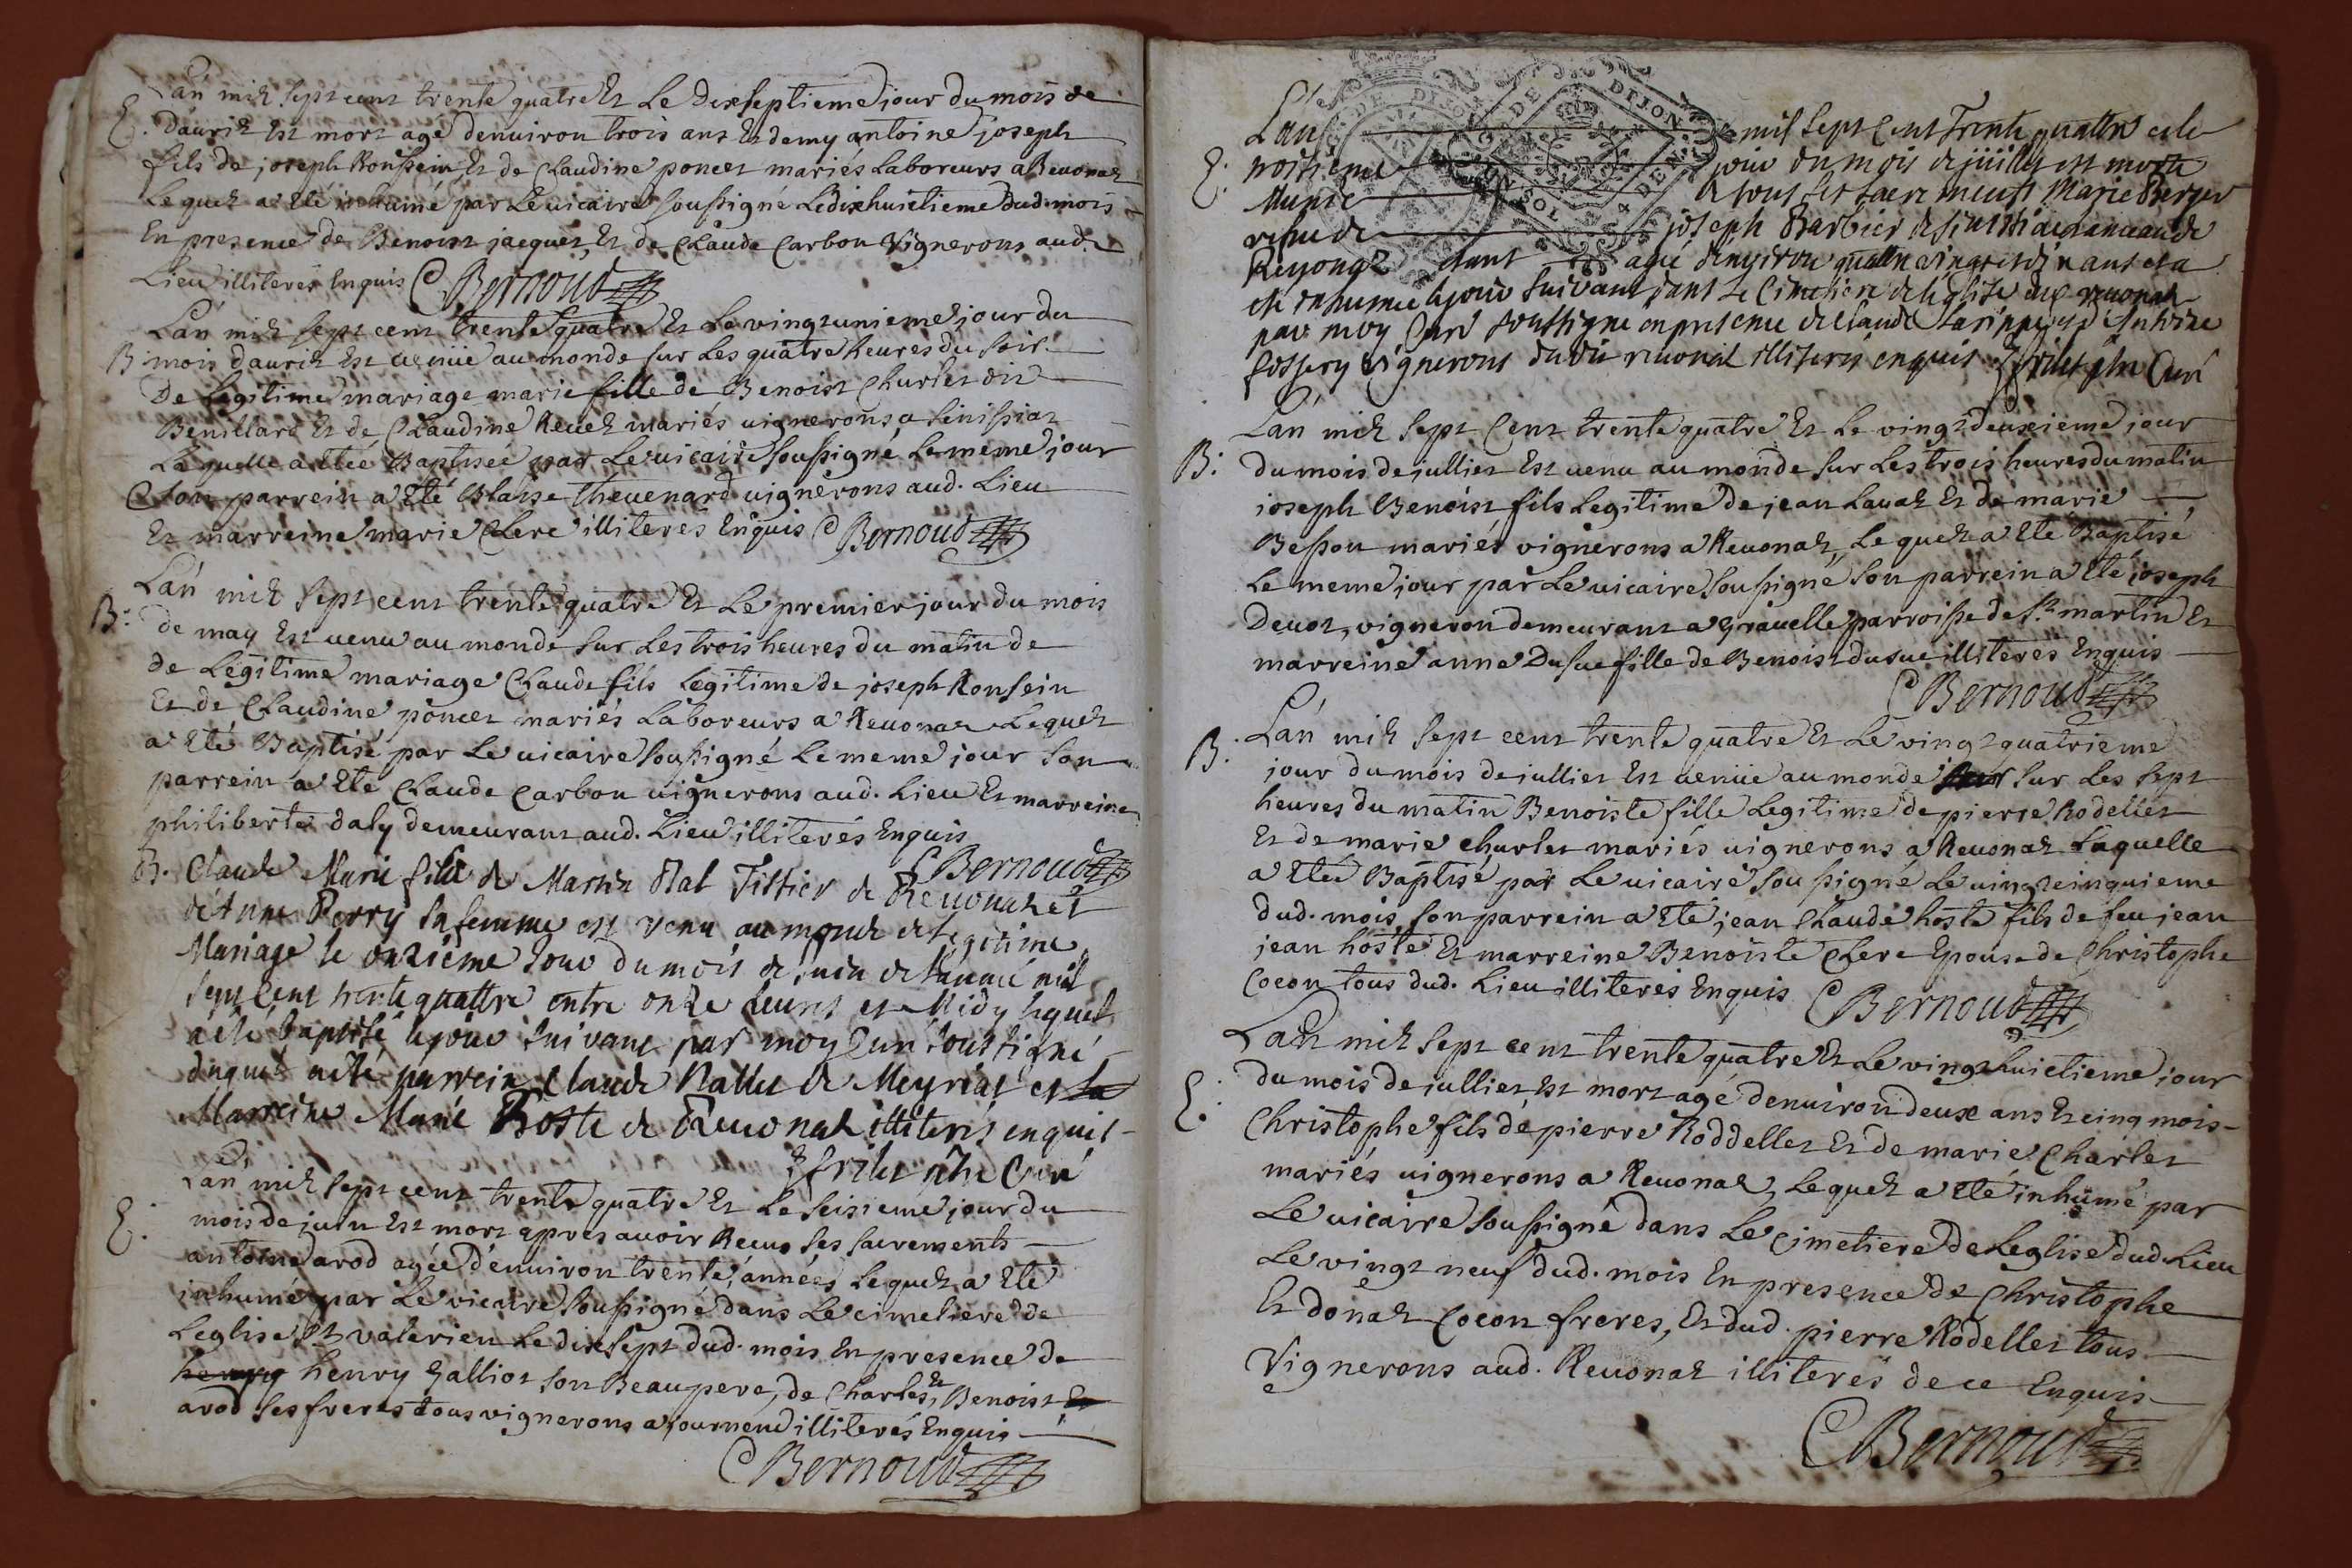 Lan mil sept cent trente quatre et le dixseptieme jour du mois de
E. Dauril est mort agé denuiron trois ans et demy antoine joseph
fils de joseph Ronssein et de Claudine poncet mariés Laboreurs a Reuonas
Lequel a eté inhumé par le uicaire soussigné le dixhuictieme dud. mois
En presence de Benoist jacquet et de Claude Carbon Vignerons aud.
Lieu illiterés Enquis Bernoud
Lan mil sept cent trente quatre et le vingt unieme jour du
B. mois dauril est venüe au monde sur les quatre heures du soir
De Legitime mariage marie fille de Benoist Charlet dit
Benillard et de Claudine Reuel mariés uignerons a Senissiat
Laquelle a etée Baptisée par le uicaire soussigné le meme jour
son parrein a eté Blaise Theuenard uignerons aud. Lieu
Et marreine marie Clere illiterés Enquis Bernoud
Lan mil sept cent trente quatre et le premier jour du mois
B. de may est uenu au monde sur les trois heures du matin de
de Legitime mariage Claude fils Legitime de joseph Ronsein
Et de Claudine poncet mariés Laboreurs a Reuonas Lequel
a eté Baptisé par le uicaire soussigné le meme jour son
parrein a eté Claude Carbon uignerons aud. Lieu Et marreine
philiberte daly demeurant aud. Lieu illiterés Enquis
Bernoud
B. Claude Marie fils de Martin Tissier de Reuonas et
d'Anne Perry sa femme est venu au monde de Legitime
Mariage le onzieme jour du mois de Juin de l'année mil
sept cent trente quattre entre onze heures et Midy lequel
a eté baptisé le jour suivant par moy Curé soussigné
duquel a eté parrein Claude Rattet de Meyriat et la
Marreine Marie Hoste de Reuonas illiterés enquis
Curé
Lan mil sept cent trente quatre et le seisieme jour du
E. mois de juin est mort apres auoir Recus ses sacrements
antoine arod agée denuiron trente années lequel a eté
inhumé par le vicaire soussigné dans le cimetiere de
Leglise St valerien le dix sept dud. mois en presence de
henry henry Galliot son Beaupere, de Charles, et Benoist et
arod ses freres tous vignerons a journend illiterés Enquis
Bernoud
DE DIJON
G. DE DIJON
SOL 4 DEN
Lan mil sept Cent Trente quattre et le
E. jour du mois de juillet est morte
Munie de tous les sacremens Marie Berger
vefue de joseph Barbier
Reuonas agée d'environ quattre vingt et dix ans et a
eté inhumée le jour suivant dans le Cimetiere de leglise de reuonas
par moy Curé soussigné en presence de Claude et d'Antoine
vignerons dudit reuonas illiterés enquis Curé
Lan mil sept Cent trente quatre et le vingt deuxieme jour
B. du mois de jullies est uenu au monde sur les trois heures du matin
joseph Benoist fils Legitime de jean Laual et de marie
Besson mariés vignerons a Reuonas, lequel a eté Baptisé
le meme jour par le uicaire soussigné son parrein a eté joseph
Deuot, vigneron demeurant a grauelle parroisse de St. martin Et
marreine anne Dusue fille de Benoist dusue illiterés Enquis
Bernoud
Lan mil sept cent trente quatre et le vingt quatrieme
B. jour du mois de jullies est uenüe au monde sur les sept
heures du matin Benoiste fille Legitime de pierre Rodellet
Et de marie charlet mariés uignerons a Reuonas Laquelle
a etée Baptisé par le uicaire soussigné le uingt cinquieme
dud. mois, son parrein a eté jean Claude hoste fils de feu jean
jean hoste Et marreine Benoiste Clere Epouse de Christophe
Cocon tous dud. Lieu illiterés Enquis Bernoud
Lan mil sept cent trente quatre et le vingt huictieme jour
E. du mois de jullies est mort agé denuiron deux ans et cinq mois
Christophe fils de pierre Roddellet Et de marie Charlet
mariés uignerons a Reuonas, lequel a eté inhumé par
le uicaire soussigné dans le cimetiere de Leglise dud. Lieu
le vingt neuf dud. mois en presence de Christophe
Et donat Cocon freres, et dud. pierre Rodellet tous
Vignerons aud. Reuonas illiterés de ce Enquis
Bernoud